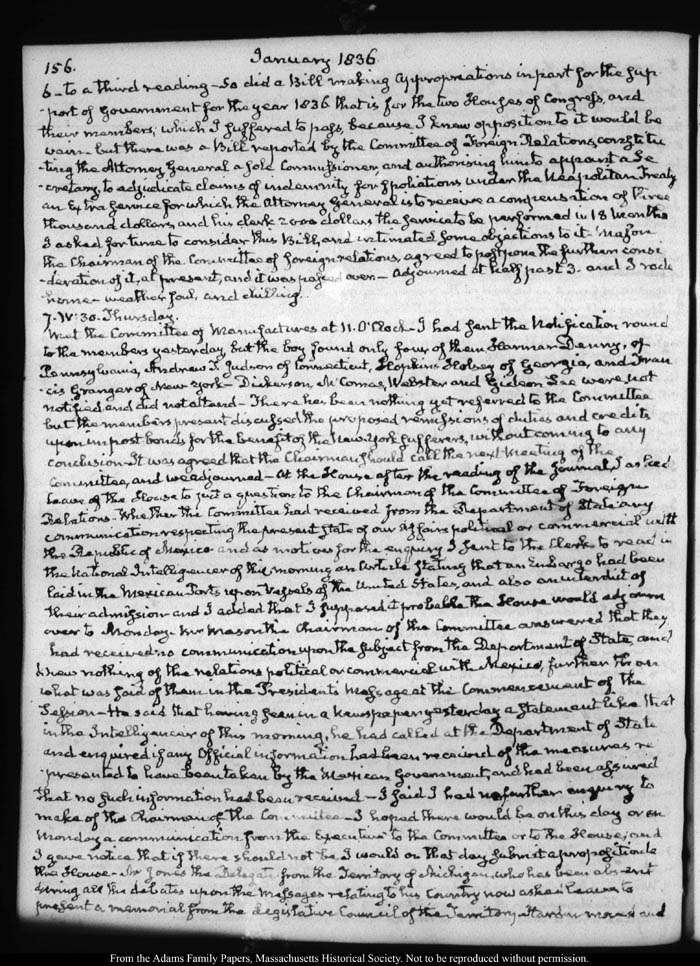 156.
January 1836
6 – to a third reading – So did a Bill making Appropriations in part for the sup
-port of Government for the year 1836 that is for the two Houses of Congress, and
their members, which I suffered to pass, because I knew opposition to it would be
vain – but there was a Bill reported by the Committee of Foreign Relations, constitu
-ting the Attorney General a sole Commissioner, and authorising him to appoint a Se
-cretary, to adjudicate claims of indemnity for spoliations under the Neapolitan Treaty
an Extra service for which the Attorney General is to receive a compensation of three
thousand dollars, and his clerk 2000 dollars the service to be performed in 18 Months
I asked for time to consider this Bill, and intimated some objections to it. Mason
the Chairman of the Committee of foreign relations, agreed to postpone the further consi
-deration of it, at present, and it was passed over – Adjourned at half past 3. and I rode
home – weather foul, and chilling.
7. IV: 30. Thursday.
Met the Committee of Manufactures at 11. O'Clock – I had sent the Notification round
to the members yesterday, but the boy found only four of them Harmar Denny, of
Pennsylvania, Andrew T. Judson of Connecticut, Hopkins Holsey of Georgia, and Fran
-cis Granger of New-York – Dickerson, McComas, Webster and Gideon Lee were not
notified and did not attend – There has been nothing yet referred to the Committee
but the members present discussed the proposed remissions of duties and credits
upon impost bonds for the benefit of the New York sufferers, without coming to any
conclusion – It was agreed that the Chairman should call the next meeting of the
Committee, and we adjourned – At the House after the reading of the Journal, I asked
leave of the House to put a question to the Chairman of the Committee of Foreign
Relations. Whether the Committee had received from the Department of State any
communication respecting the present state of our affairs political or commercial with
the Republic of Mexico and as motives for the enquiry I sent to the Clerk to read in
the National Intelligencer of this morning an Article stating that an Embargo had been
laid in the Mexican Ports upon Vessels of the United States, and also an interdict of
their admission – and I added that I supposed it probable the House would adjourn
over to Monday. Mr Mason the Chairman of the Committee answered that they
had received no communication upon the subject from the Department of State, and
knew nothing of the relations political or commercial with Mexico, further than
what was said of them in the President's Message at the Commencement of the
Session – He said that having seen in a Newspaper yesterday a statement like that
in the Intelligencer of this morning, he had called at the Department of State
and enquired if any Official information had been received of the measures re
-presented to have been taken by the Mexican Government, and had been assured
that no such information had been received – I said I had no further enquiry to
make of the Chairman of the Committee – I hoped there would be on this day or on
Monday a communication from the Executive to the Committee or to the House, and
I gave notice that if there should not be I would on that day submit a proposition to
the House – Mr Jones the Delegate from the Territory of Michigan, who has been absent
during all the debates upon the Messages relating to his Country now asked leave to
present a memorial from the Legislative Council of the Territory. moved and
From the Adams Family Papers, Massachusetts Historical Society. Not to be reproduced without permission.